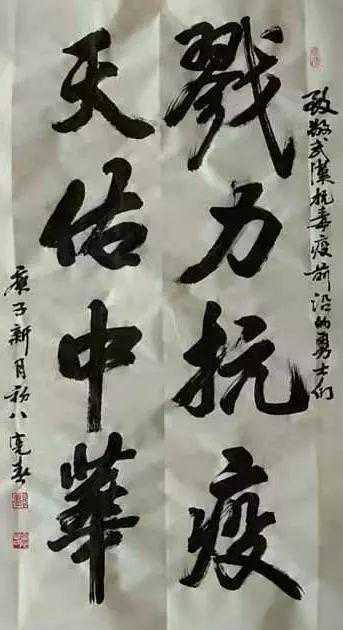 致敬武漢抗毒疫前沿的勇士们
戮力抗疫
天佑中華
庚子新月初八